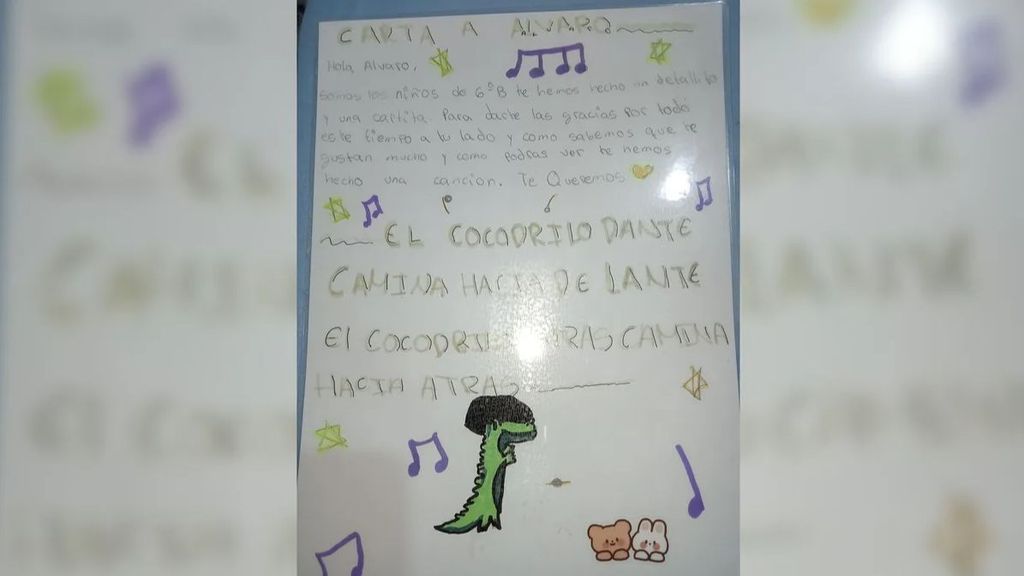 CARTA A ALVARO
Hola, Alvaro,
Somos los niños de 6ºB te hemos hecho un detallito
y una cartita. Para darte las gracias por todo
este tiempo a tu lado y como sabemos que te
gustan mucho y como podras ver te hemos
hecho una cancion. Te Queremos
EL COCODRILO DANTE
CAMINA HACIA DELANTE
El COCODRILO CAMINA
HACIA ATRAS